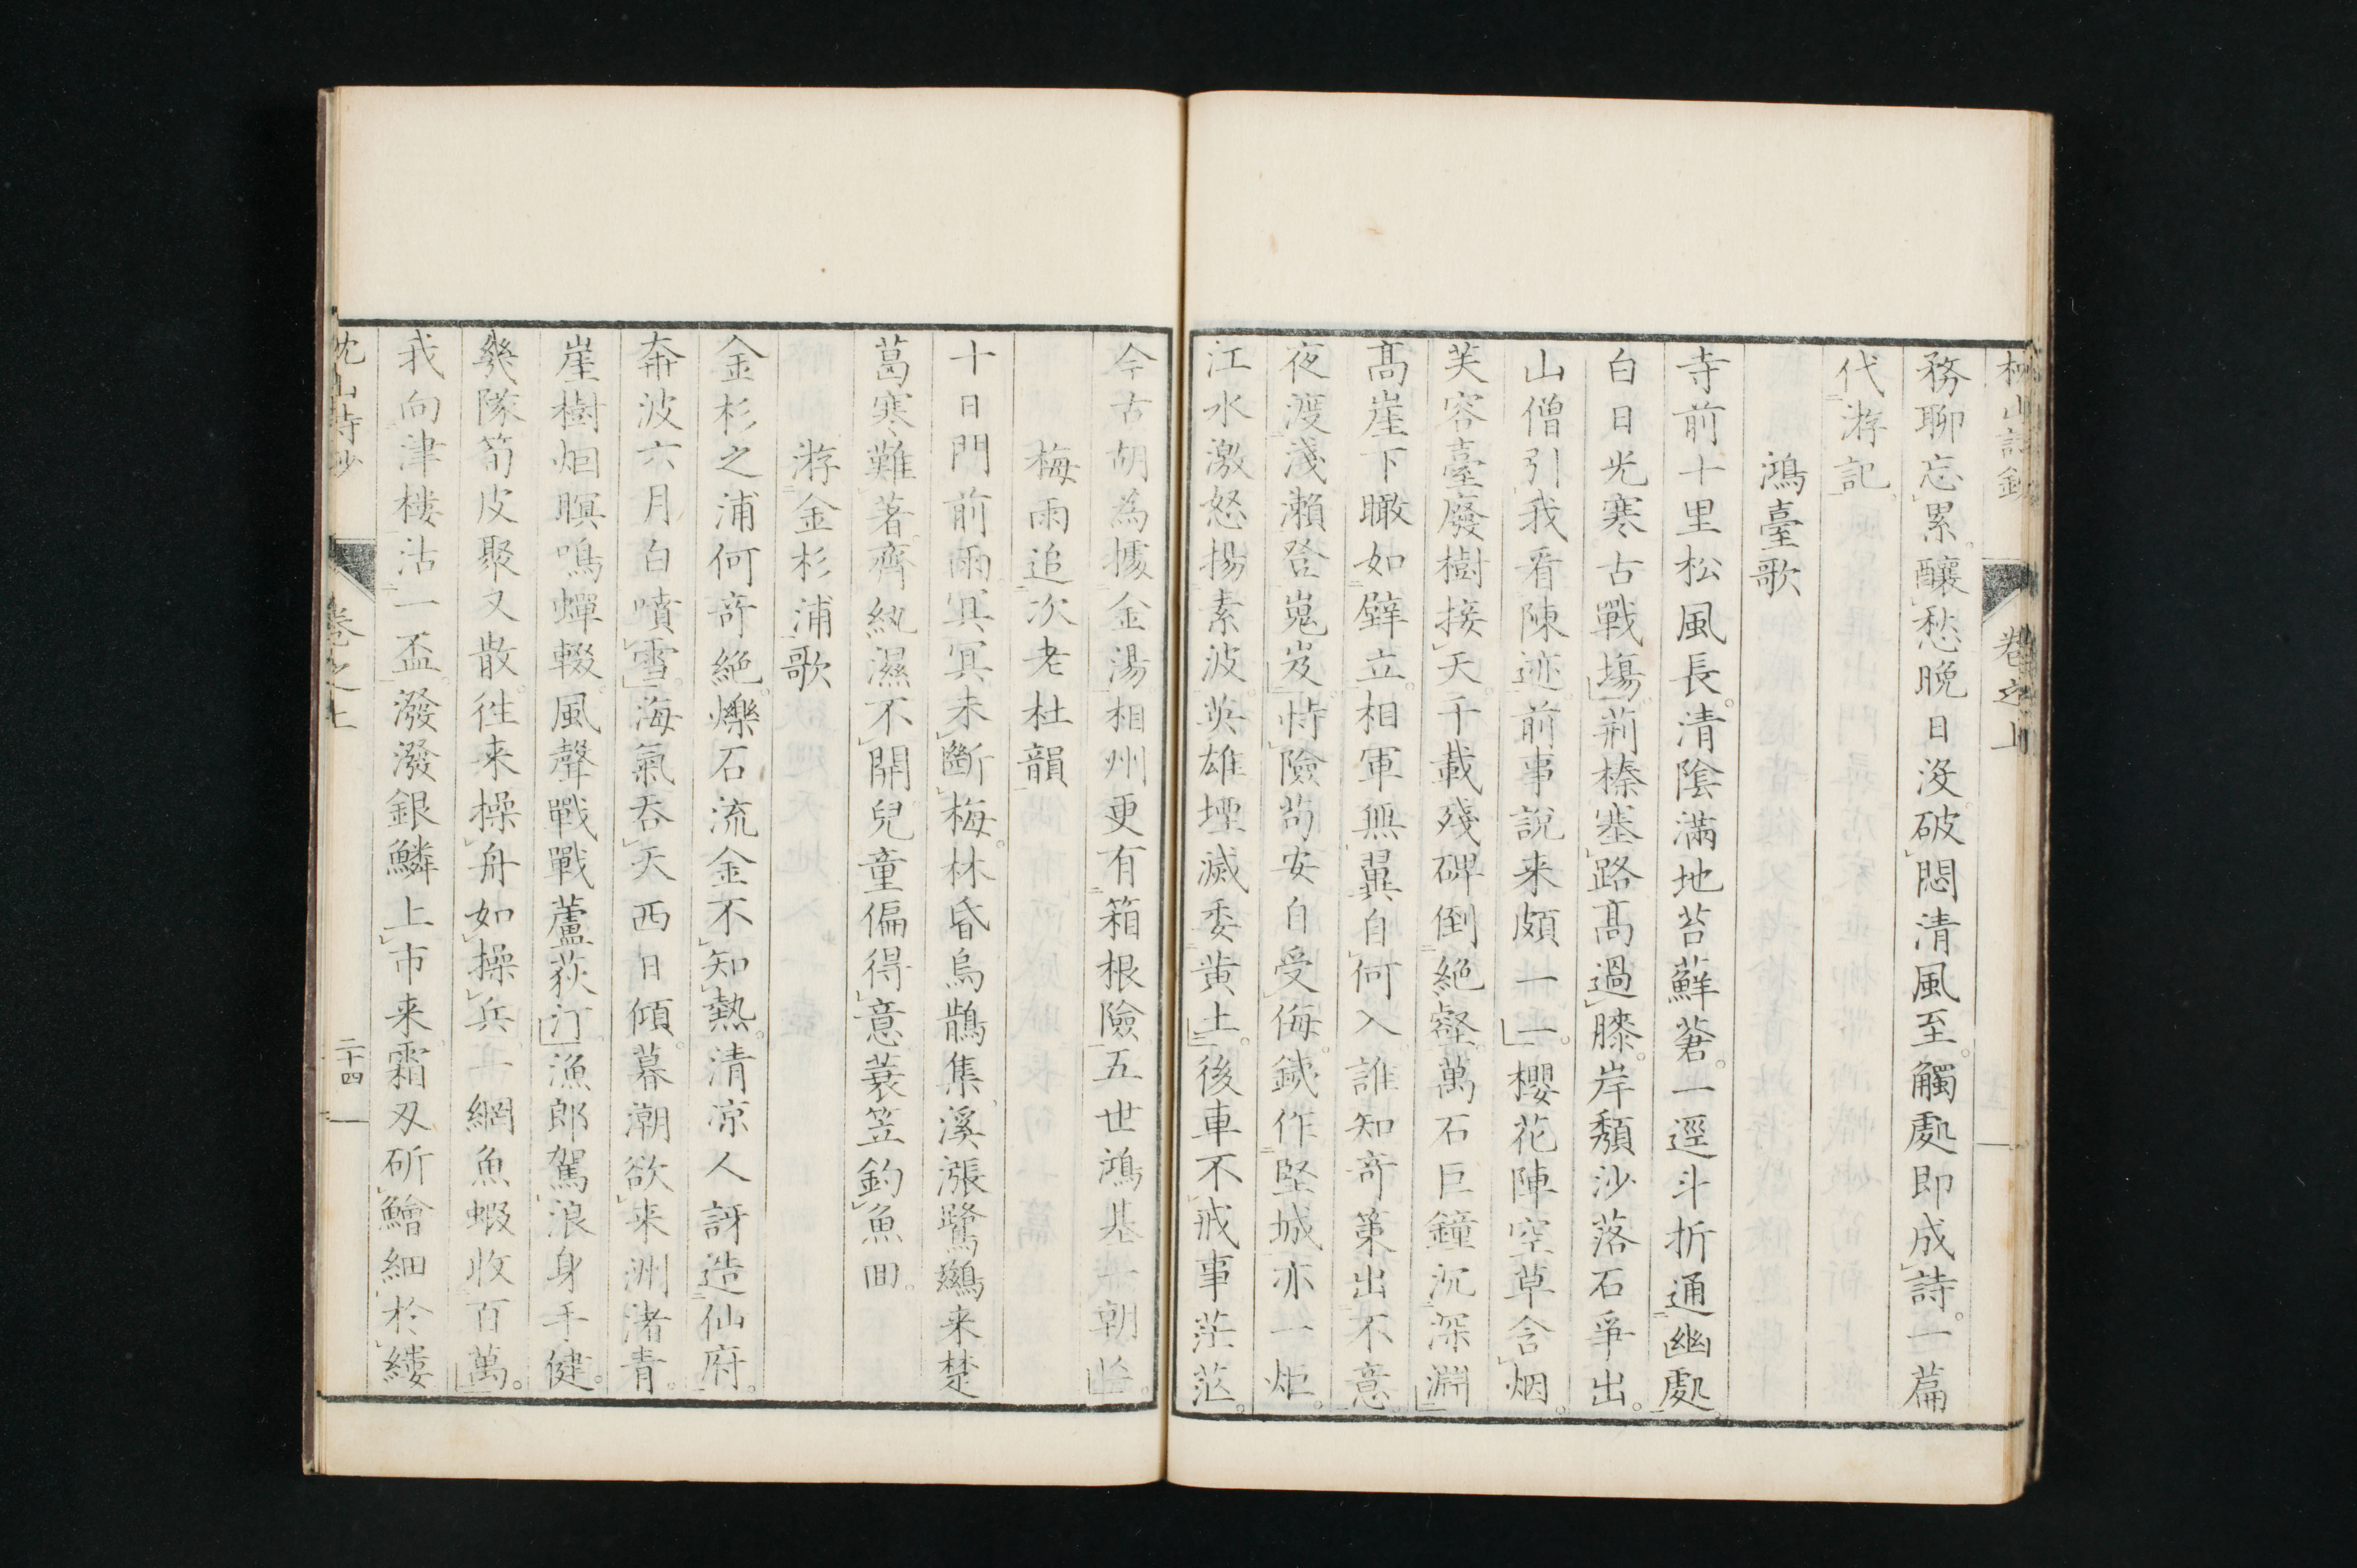 務聊忘累釀愁晚日沒破悶清風至觸處即成詩一篇
代游記
鴻臺歌
寺前十里松風長清陰滿地苔蘚蒼一逕斗折通幽處
白日光寒古戰場荊榛塞路高過膝岸頹沙落石爭出
山僧引我看陳迹前事說来頗一一櫻花陣空草含烟
芙容臺廢樹接天千載殘碑倒絕壑萬石巨鐘沉深淵
高崖下瞰如壁立相軍無翼自何入誰知奇策出不意
夜渡淺瀨登嵬岌恃險苟安自受侮鐵作堅城亦一炬
江水激怒揚素波英雄堙滅委黃土後車不戒事茫茫
今古胡為據金湯相州更有箱根險五世鴻基一朝
梅雨追次老杜韻
十日門前雨冥冥未斷梅林昏烏鵲集溪漲鷺鷥来楚
葛寒難著齊紈濕不開兒童偏得意蓑笠釣魚回
游金杉浦歌
金杉之浦何奇絕爍石流金不知熱清凉人訝造仙府
奔波六月白噴雪海氣吞天西日傾暮潮欲来洲渚青
崖樹烟暝鳴蟬輟風聲戰戰蘆荻汀漁郎駕浪身手健
幾隊筍皮聚又散往来操舟如操兵一網魚蝦收百萬
我向津樓沽一盃潑潑銀鱗上市来霜刃斫鱠細於縷
枕山詩鈔
卷之上
二十四